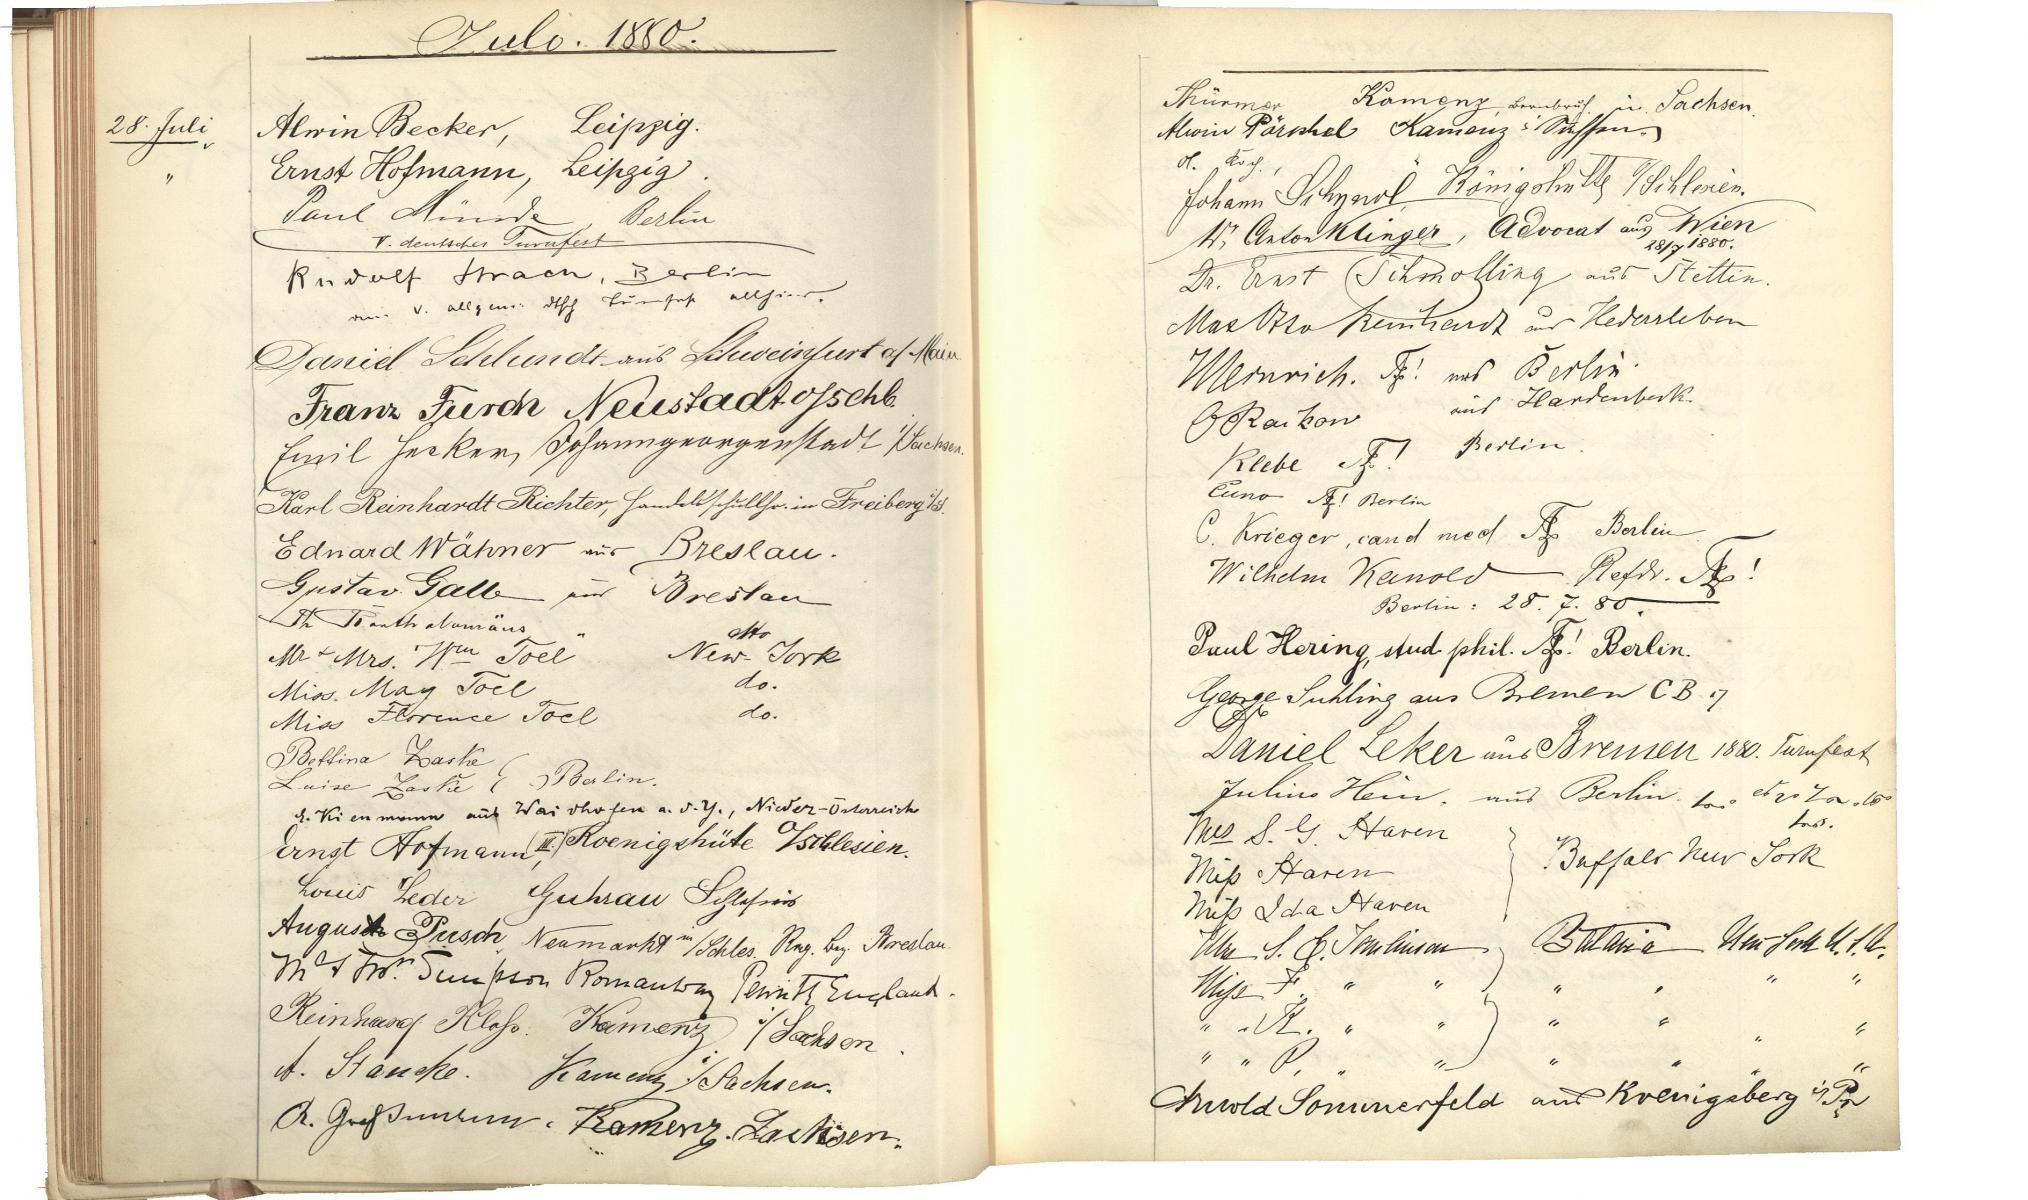 Juli. 1880.
28. Juli
Alwin Becker, Leipzig.
" Ernst Hofmann, Leipzig.
Paul Münde, Berlin
V. deutsches Turnfest
Rudolf Strach, Berlin
V. allgem. dtsch
Daniel Schlundt aus Schweinfurt a/Main
Franz Furch Neustadt o/schl.
Emil Hecker, Johanngeorgenstadt i/Sachsen.
Karl Reinhardt Richter, Handelsschullhr. in Freiberg i/S.
Eduard Wähner aus Breslau.
Gustav Galle aus Breslau
Th Bartholomäus dtto
Mr & Mrs. Wm Toel New-York
Miss. May Toel do.
Miss Florence Toel do.
Bettina Zaske
Luise Zaske Berlin.
aus Waidhofen a.d.Y., Nieder-Österreich
Ernst Hofmann, (III.) Koenigshüte O/Schlesien.
Louis Leder Guhrau Schlesien
August Pusch, Neumarkt in/Schles. Rng. bez. Breslau.
Simpson Penrith England.
Kloss. Kamenz i/Sachsen.
A. Stancke. Kamenz i/Sachsen.
R. Kamenz. Sachsen.
Thürmer Kamenz in Sachsen.
Alwin Pörschel Kamenz i Sachsen.
Johann Königshütte O/Schlesien.
Dr. Anton Klinger, Advocat aus Wien
28/7 1880.
Dr. Ernst Schmolling aus Stettin.
Max Otto Reinhardt aus Hedersleben
Weinrich. aus Berlin.
O Rackow aus Hardenbeck.
Klebe Berlin.
Cuno Berlin
C. Krieger, cand med Berlin
Wilhelm Kanold Refdr.
Berlin: 28. 7. 80.
Paul Hering, stud. phil. Berlin.
George Suhling aus Bremen C.B.
Daniel Leker aus Bremen 1880. Turnfest
Julius Hein. aus Berlin.
Mrs S. G. Haven
Miss Haven Buffalo New York
Miss Ida Haven
Mrs S. E. Tomlinson Batavia New York U.S.A.
Miss F. " " " " " "
" " K. " " " " " "
" " P. " " " " " "
Arnold Sommerfeld aus Koenigsberg i/Pr